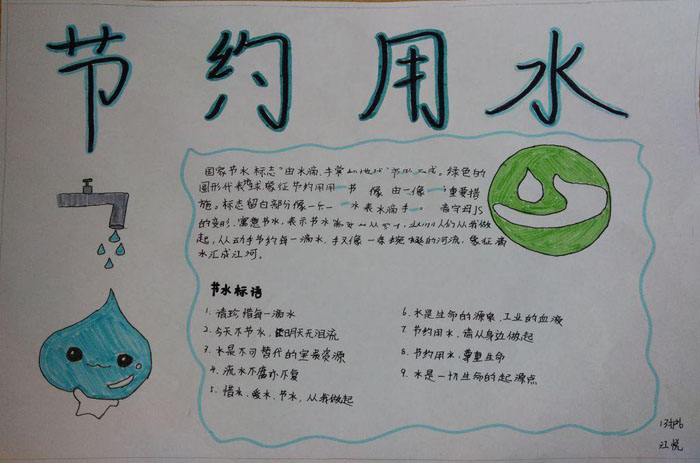 节约用水
国家节水标志"由水滴,手掌
绿色的
圆形代表地球,象征节约用
节 像 由一像 重要措
施。标志留白部分像一
水表水滴手
字母JS
的变形,寓意节水,表示节水
人们从我做
起,从动手节约每一滴水,手又像一条蜿蜒的河流,象征滴
水汇成江河。
节水标语
1. 请珍惜每一滴水
2. 今天不节水,明天无泪流
3. 水是不可替代的宝贵资源
4. 流水不腐亦不复
5. 惜水、爱水、节水,从我做起
6. 水是生命的源泉,工业的血液
7. 节约用水,请从身边做起
8. 节约用水,尊重生命
9. 水是一切生命的起源点
江悦